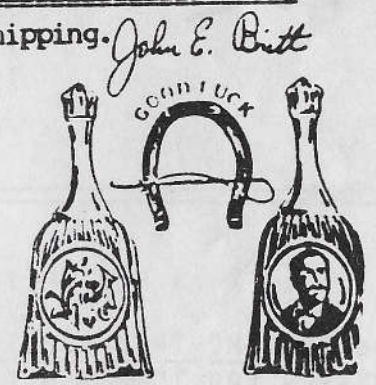 hipping. John E. Britt
GOOD LUCK